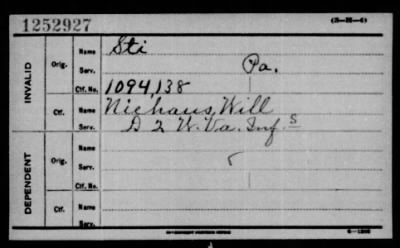 1252927 (3-H-4)
INVALID
Orig. Name Sti
Serv. Pa.
Ctf. No. 1094,138
Ctf. Name Niehaus, Will
Serv. D 2 W. Va. Inf. S
DEPENDENT
Orig. Name
Serv.
Ctf. No.
Ctf. Name
Serv.